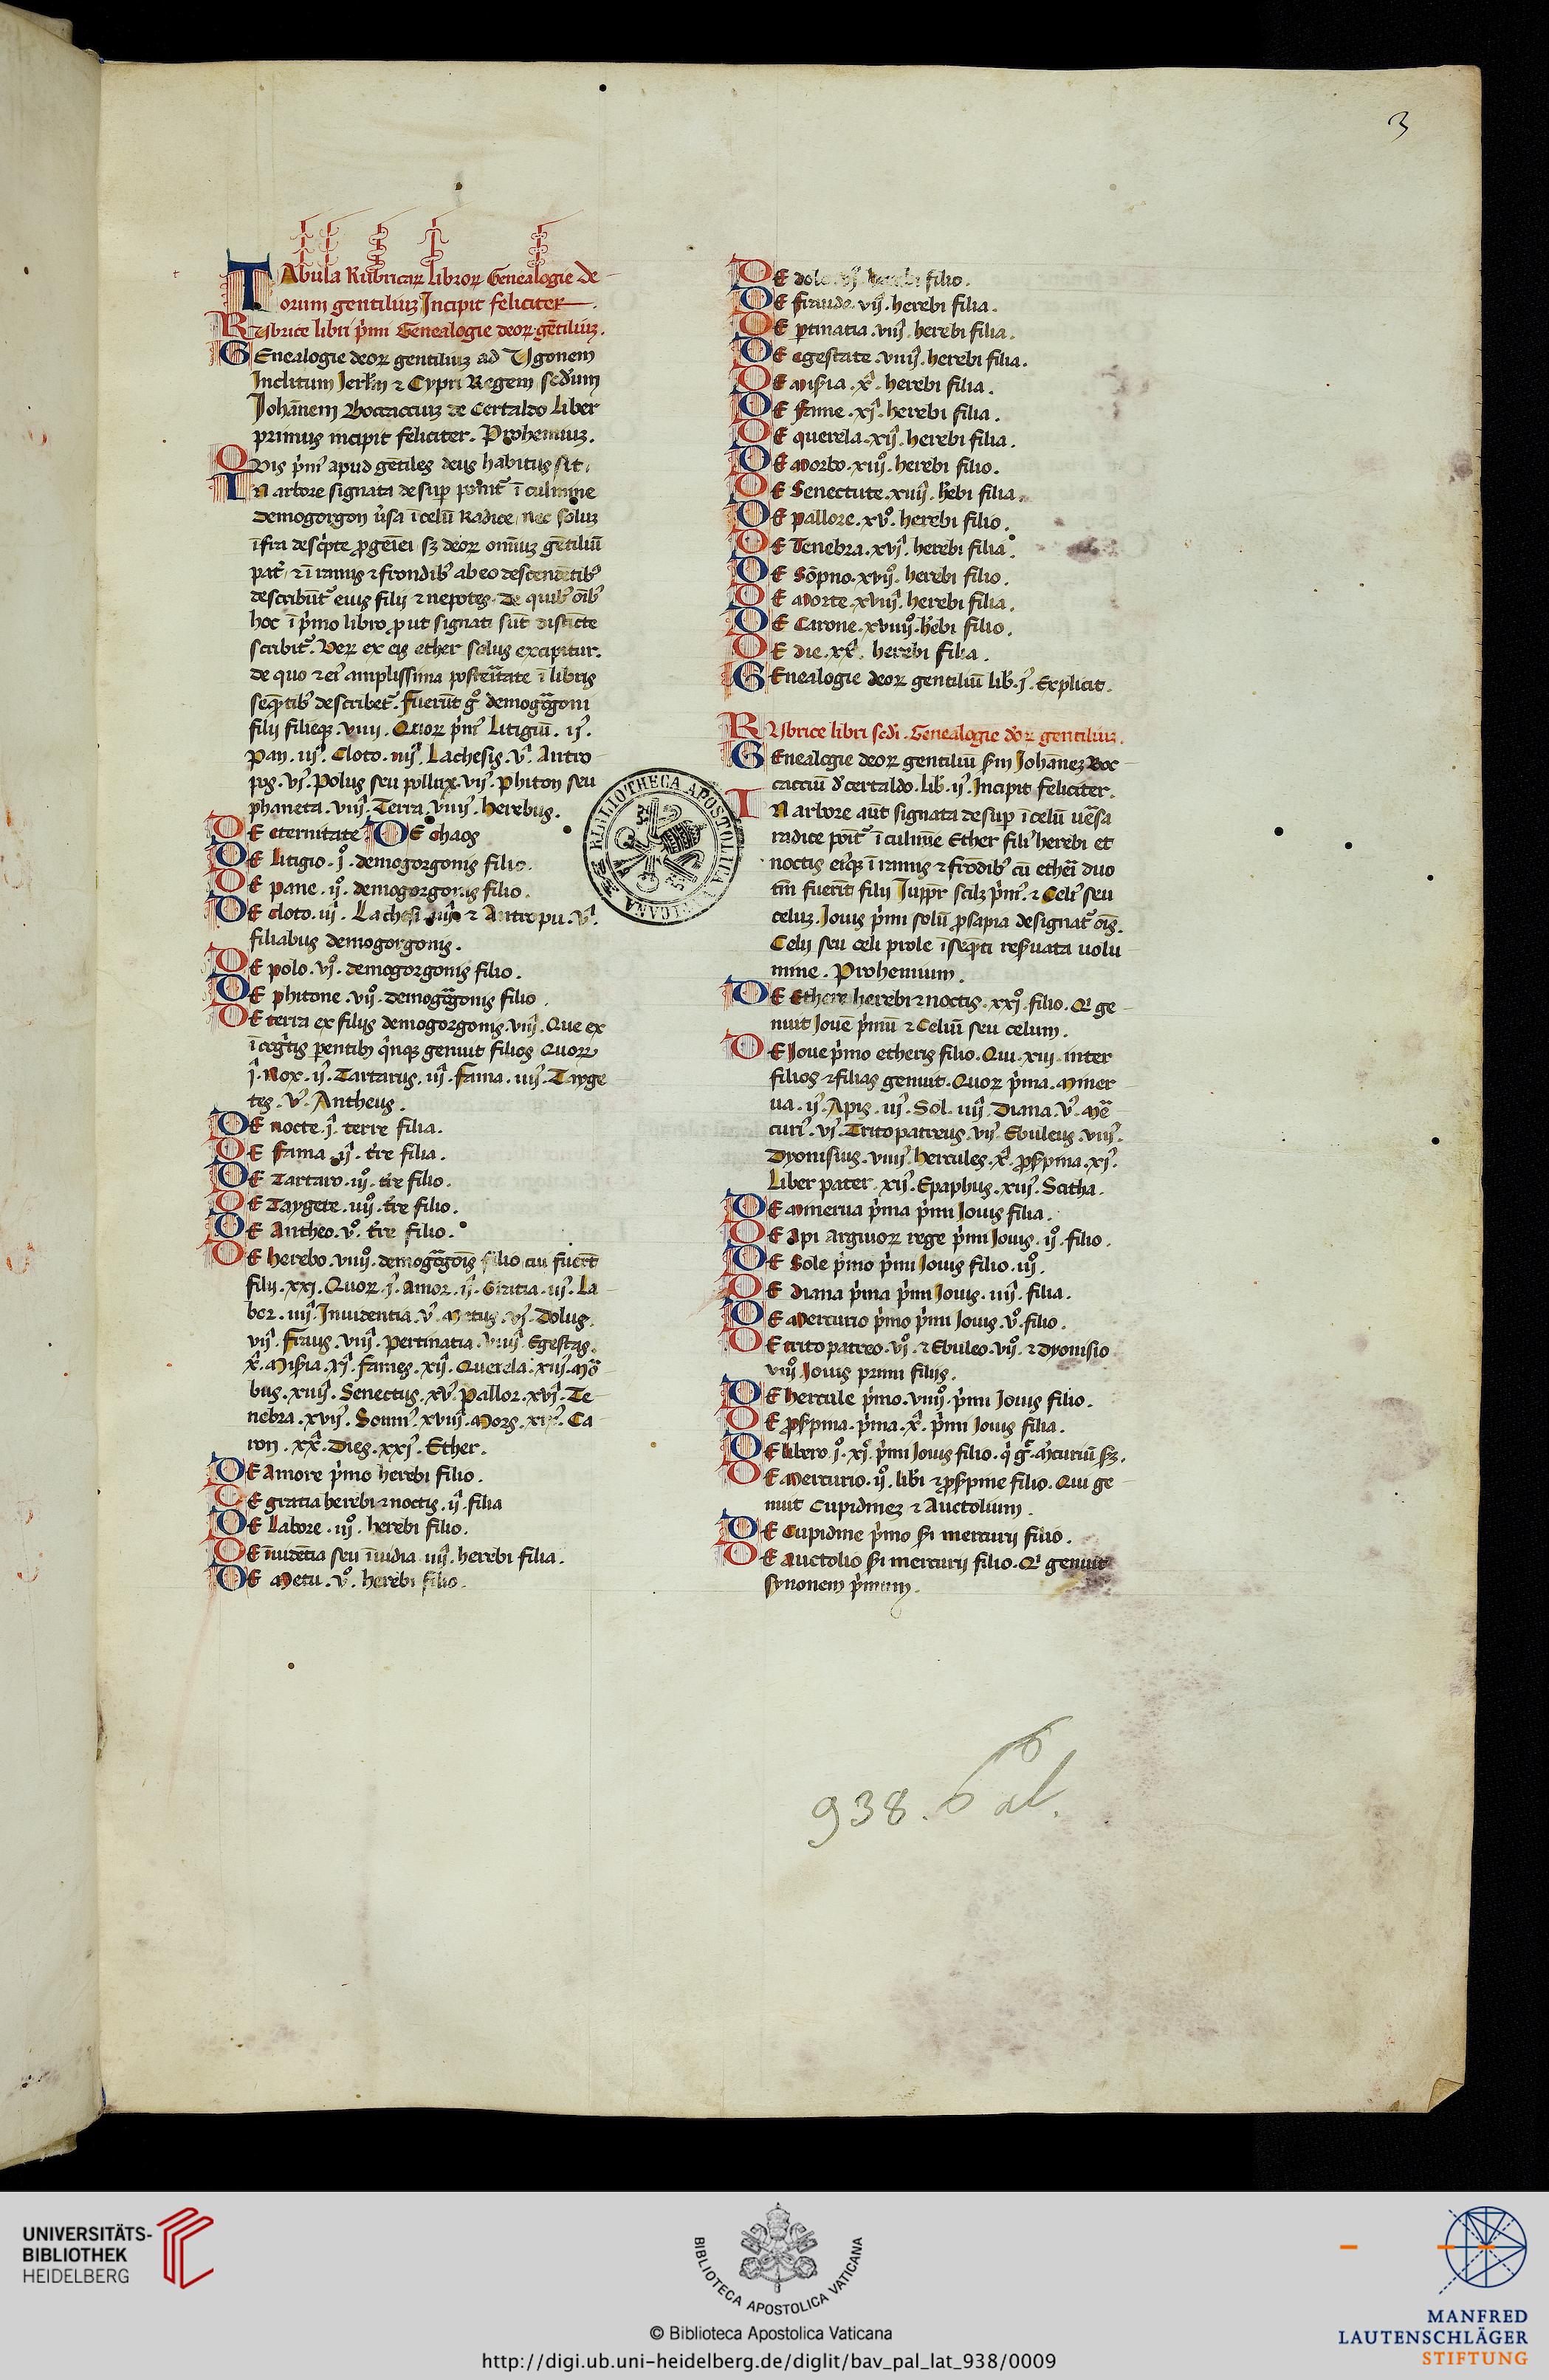 3
TAbula Rubricaꝝ libroꝝ Genealogie de
orum gentiliuꝫ Incipit feliciter
RUbrice libri p̓mi Genealogie deoꝝ gẽtiliuꝫ.
GEnealogie deoꝝ gentiliuꝫ ad Ugonem
Inclitum Jerl̓m ⁊ Cypri Regem sed̓um
Johãnem Boccacciuꝫ de Certaldo liber
primus incipit feliciter. Prohemiuꝫ.
QUis p̓m᾽ apud gẽtiles deus habitus sit.
IN arbore signata desuꝑ poĩt᾽ ĩ culmine
demogorgon ṽsa ĩ celũ Radice, nec soluꝫ
ĩfra desc̓pte ꝓgeĩei sꝫ deoꝝ omĩuꝫ gẽtiliũ
pat̓. ⁊ ĩ ramis ⁊ frondib᾽ ab eo descendẽtib᾽
describũt᾽ eius filij ⁊ nepotes. De quib᾽ oĩb᾽
hoc ĩ p̓mo libro ꝓut signati sũt distĩcte
scribit᾽. Veꝝ ex eis ether solus excipitur.
de quo ⁊ ei᾽ amplissima posteritate ĩ libris
seq̃ntib᾽ describet᾽. Fuerũt g̊ demogorgoni
filij filieqꝫ .viiij. Quoꝝ p̓m᾽ Litigiũ. ij᾽.
Pan. iij᾽. Cloto. iiij᾽. Lachesis. v᾽. Antro
pꝰ. vj᾽. Polus seu pollux. vij᾽. Phiton seu
phaneta. viij᾽. Terra. viiij᾽. herebus.
DE eternitate DE Chaos
DE litigio .j̊. demogorgonis filio.
DE pane .ij̊. demogorgonis filio.
DE cloto .iij. Lachesi .iiij. ⁊ Antropu .v.
filiabus demogorgonis.
DE polo .vj̊. demogorgonis filio.
DE phitone .vij̊. demogorgonis filio.
DE terra ex filijs demogorgonis .viij. Que ex
ĩcog̓tis parentibꝫ q̓nqꝫ genuit filios Quoꝝ
j. Nox. ij. Tartarus. iij. fama. iiij. Tayge
tes. v. Antheus.
DE nocte .j. terre filia.
DE fama .ij. t̓re filia.
DE Tartaro .iij. t̓re filio.
DE Taygete .iiij̊. t̓re filio.
DE Antheo .v̊. t̓re filio.
DE herebo .viiij̊. demogorgoĩs filio cui fuerẽt
filij .xxj. Quoꝝ .j. Amor. ij. Gratia. iij. La
bor. iiij. Inuidentia. v. Metus. vj. Dolus.
vij. Fraus. viij. Pertinatia. viiij. Egestas.
x. Mis̓ia. xj. Fames. xij. Querela. xiij. Mor
bus. xiiij. Senectus. xv. Pallor. xvj. Te
nebra. xvij. Somn᾽. xviij. Mors. xix. Ca
ron. xx. Dies. xxj. Ether.
DE Amore p̓mo herebi filio.
DE gratia herebi ⁊ noctis .ij. filia
DE Labore .iij̊. herebi filio.
DE ĩuidẽtia seu ĩuidia .iiij. herebi filia.
DE Metu .v̊. herebi filio.
DE dolo .vj. herebi filio.
DE fraude .vij. herebi filia.
DE ꝑtinatia .viij. herebi filia.
DE egestate .viiij. herebi filia.
DE Mis̓ia .x. herebi filia.
DE fame .xj. herebi filia.
DE querela .xij. herebi filia.
DE Morbo .xiij̊. herebi filio.
DE Senectute .xiiij. h̓ebi filia.
DE pallore .xv̊. herebi filio.
DE Tenebra .xvj. herebi filia.
DE Sõpno .xvij̊. herebi filio.
DE Morte .xviij. herebi filia.
DE Carone .xviiij̊. h̓ebi filio.
DE die .xx. herebi filia.
GEnealogie deoꝝ gentiliũ lib̓ .j. Explicit.
RUbrice libri sed̓i. Genealogie deoꝝ gentiliuꝫ.
GEnealogie deoꝝ gentiliũ s̓m Johãneꝫ Boc
cacciũ d̓ certaldo. lib̓. ij. Incipit feliciter.
IN arbore aũt signata desuꝑ ĩ celũ ũersa
radice poĩt᾽ ĩ culmĩe Ether fili᾽ herebi et
noctis ei᾽qꝫ ĩ ramis ⁊ frõdib᾽ cũ etheri duo
tm̃ fuerĩt filij Juppr̃ scilꝫ p̓m᾽. ⁊ Celi᾽ seu
celuꝫ. Jouis p̓mi solũ ꝓsapia designat᾽ oĩs.
Celij seu celi prole ĩ seq̃nti res̓uata uolu
mine. Prohemium.
DE Ethere herebi ⁊ noctis .xxj̊. filio. Qi ge
nuit Jouẽ p̓mũ ⁊ Celiũ seu celum.
DE Joue p̓mo etheris filio. Qui .xiij. inter
filios ⁊ filias genuit. Quoꝝ p̓ma. Miner
ua. ij. Apis. iij. Sol. iiij. Diana. v. Mer
curi᾽. vj. Tritopatreus. vij. Ebuleus. viij.
Dyonisius. viiij. hercules. x. ꝓs̓pina. xj.
Liber pater. xij. Epaphus. xiij. Scitha.
DE Minerua p̓ma p̓mi Jouis filia.
DE Api Argiuoꝝ rege p̓mi Jouis .ij̊. filio.
DE Sole p̓mo p̓mi Jouis filio .iij̊.
DE Diana p̓ma p̓mi Jouis .iiij. filia.
DE Mercurio p̓mo p̓mi Jouis .v̊. filio.
DE tritopatreo .vj̊. ⁊ Ebuleo .vij̊. ⁊ Dyonisio
viij̊ Jouis primi filijs.
DE hercule p̓mo .viiij̊. p̓mi Jouis filio.
DE ꝓs̓pina. p̓ma .x. p̓mi Jouis filia.
DE libero .j̊. xj̊. p̓mi Jouis filio. q̓ g̃t m̓curiũ s̓ꝫ.
DE Mercurio .ij̊. lib̓i ⁊ ꝓs̓pine filio. Qui ge
nuit Cupidineꝫ ⁊ Auctolium.
DE Cupidine p̓mo s̓i mercurij filio.
DE Auctolio s̓i mercurij filio. Qi genuit
synonem p̓mum.
BIBLIOTHECA APOSTOLICA VATICANA
938. Pal.
UNIVERSITÄTS-
BIBLIOTHEK
HEIDELBERG
BIBLIOTECA APOSTOLICA VATICANA
© Biblioteca Apostolica Vaticana
http://digi.ub.uni-heidelberg.de/diglit/bav_pal_lat_938/0009
MANFRED
LAUTENSCHLÄGER
STIFTUNG